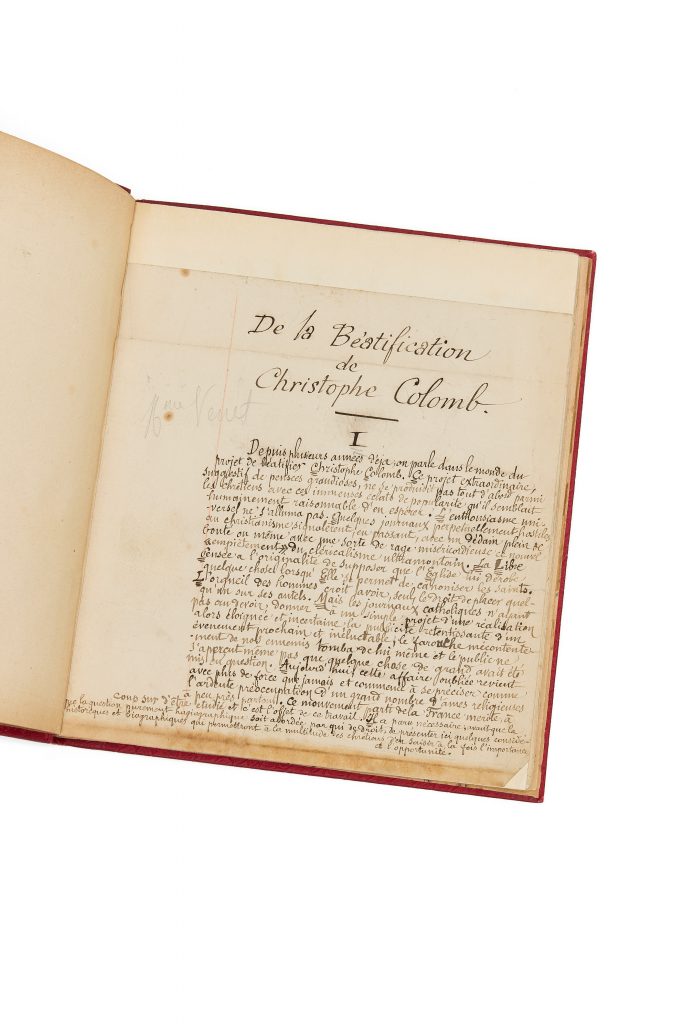 De la Béatification
de
Christophe Colomb.
I
Depuis plusieurs années déjà, on parle dans le monde du
projet de béatifier Christophe Colomb. Ce projet extraordinaire,
suggestif de pensées grandioses, ne se produisit pas tout d'abord parmi
les chrétiens avec ces immenses éclats de popularité qu'il semblait
humainement raisonnable d'en espérer. L'enthousiasme uni-
versel ne s'alluma pas. Quelques journaux perpétuellement hostiles
au christianisme signalèrent, en passant, avec un dédain plein de
bonté ou même avec une sorte de rage miséricordieuse ce nouvel
empiètement du cléricalisme ultramontain. La Libre
Pensée a l'originalité de supposer que l'Église lui dérobe
quelque chose lorsqu'Elle se permet de canoniser les Saints.
L'orgueil des hommes croit avoir, seul, le droit de placer quel-
qu'un sur ses autels. Mais les journaux catholiques n'ayant
pas cru devoir donner à un simple projet d'une réalisation
alors éloignée et incertaine la publicité retentissante d'un
événement prochain et inéluctable, le farouche mécontente-
ment de nos ennemis tomba de lui même et le public ne
s'aperçut même pas que quelque chose de grand avait été
mis en question. Aujourd'hui, cette affaire oubliée revient
avec plus de force que jamais et commence à se préciser comme
l'ardente préoccupation d'un grand nombre d'âmes religieuses
à peu près partout. Ce mouvement parti de la France mérite, à
coup sûr d'être étudié et c'est l'objet de ce travail. Il a paru nécessaire, avant que la
que la question purement hagiographique soit abordée par qui de droit, de présenter ici quelques considé-
historiques et biographiques qui permettront à la multitude des chrétiens d'en saisir à la fois l'importance
et l'opportunité.